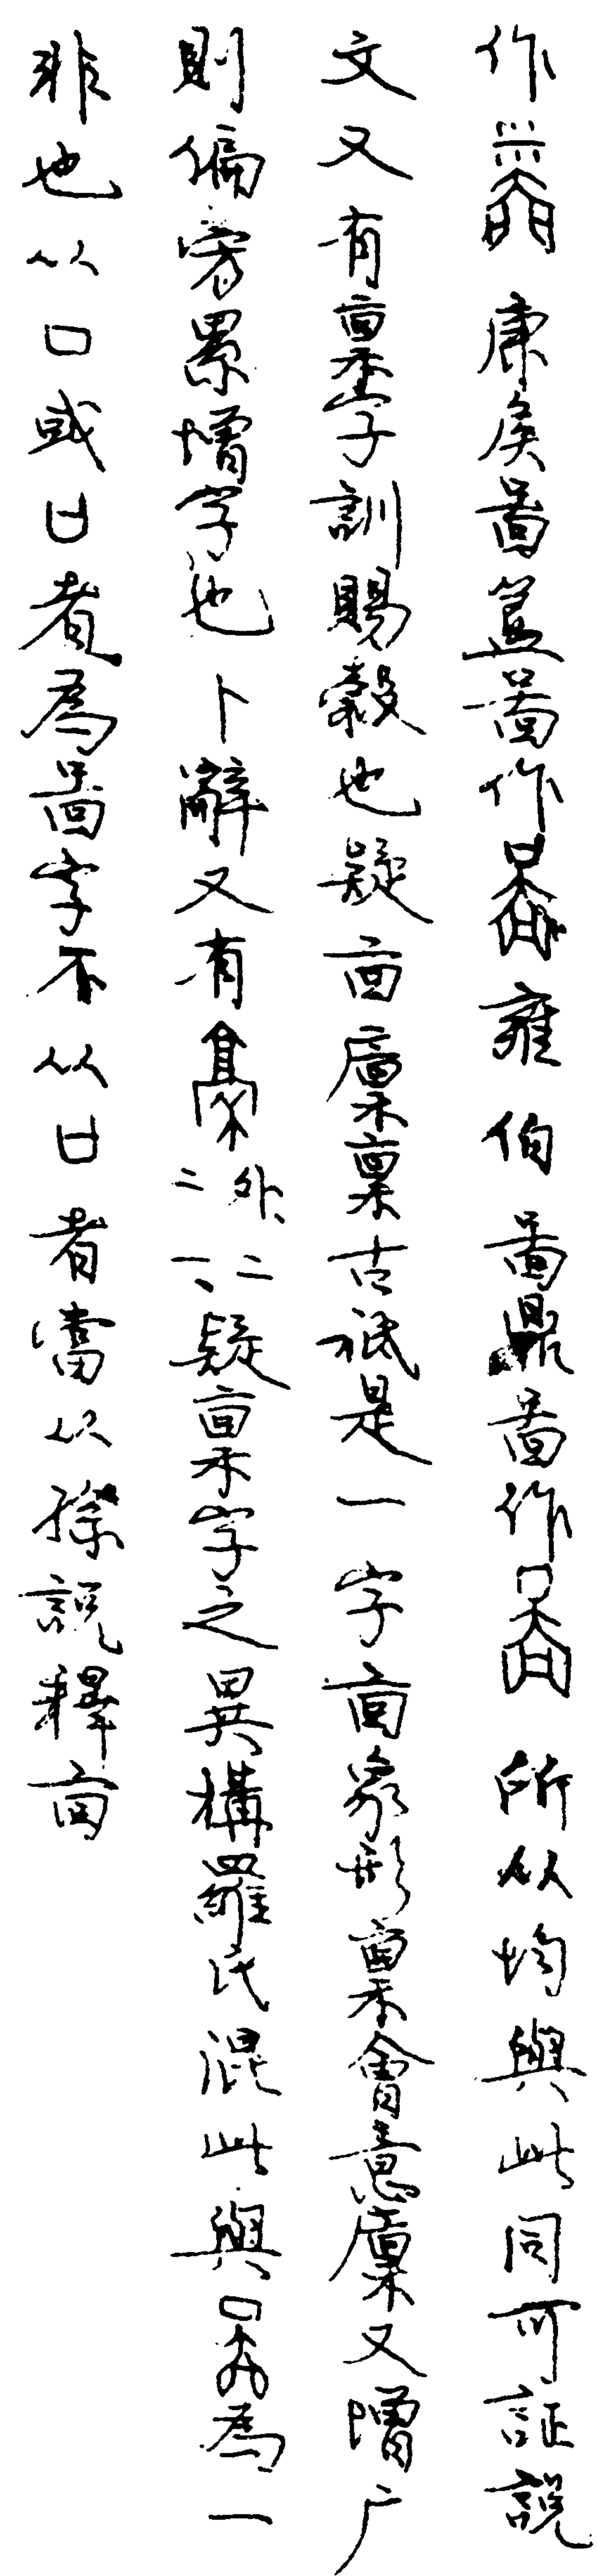 作 康矦啚簋啚作 雍伯啚鼎啚作 所从均與此同可証說
文又有稟字訓賜穀也疑㐭廩稟古祇是一字㐭象形稟會意廩又增广
則偏旁累增字也卜辭又有 外二二一、疑稟字之異構羅氏混此與 為一
非也从口或㠯者為啚字不从㠯者當从孫說釋㐭